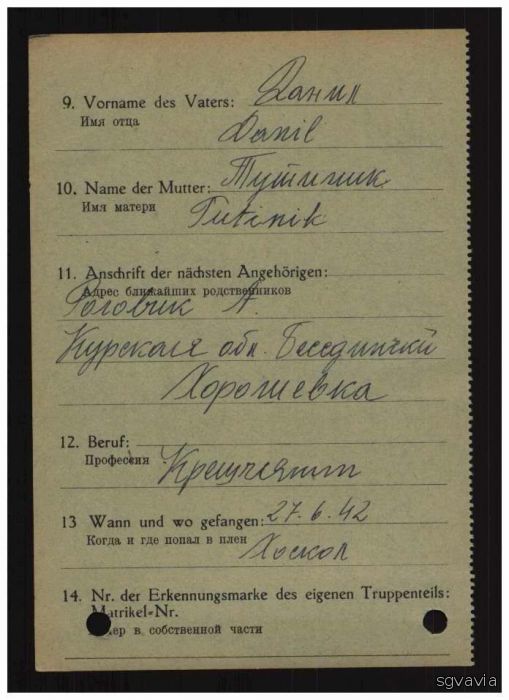 9. Vorname des Vaters: Данил
Имя отца
Danil
10. Name der Mutter: Тутиник
Имя матери
Tutinik
11. Anschrift der nächsten Angehörigen:
Адрес ближайших родственников
Роговик А.
Курская обл. Беседински
Хорошевка
12. Beruf:
Профессия
13 Wann und wo gefangen: 27.6.42
Когда и где попал в плен
Хоскол
14. Nr. der Erkennungsmarke des eigenen Truppenteils:
Matrikel-Nr.
в собственной части
sgvavia